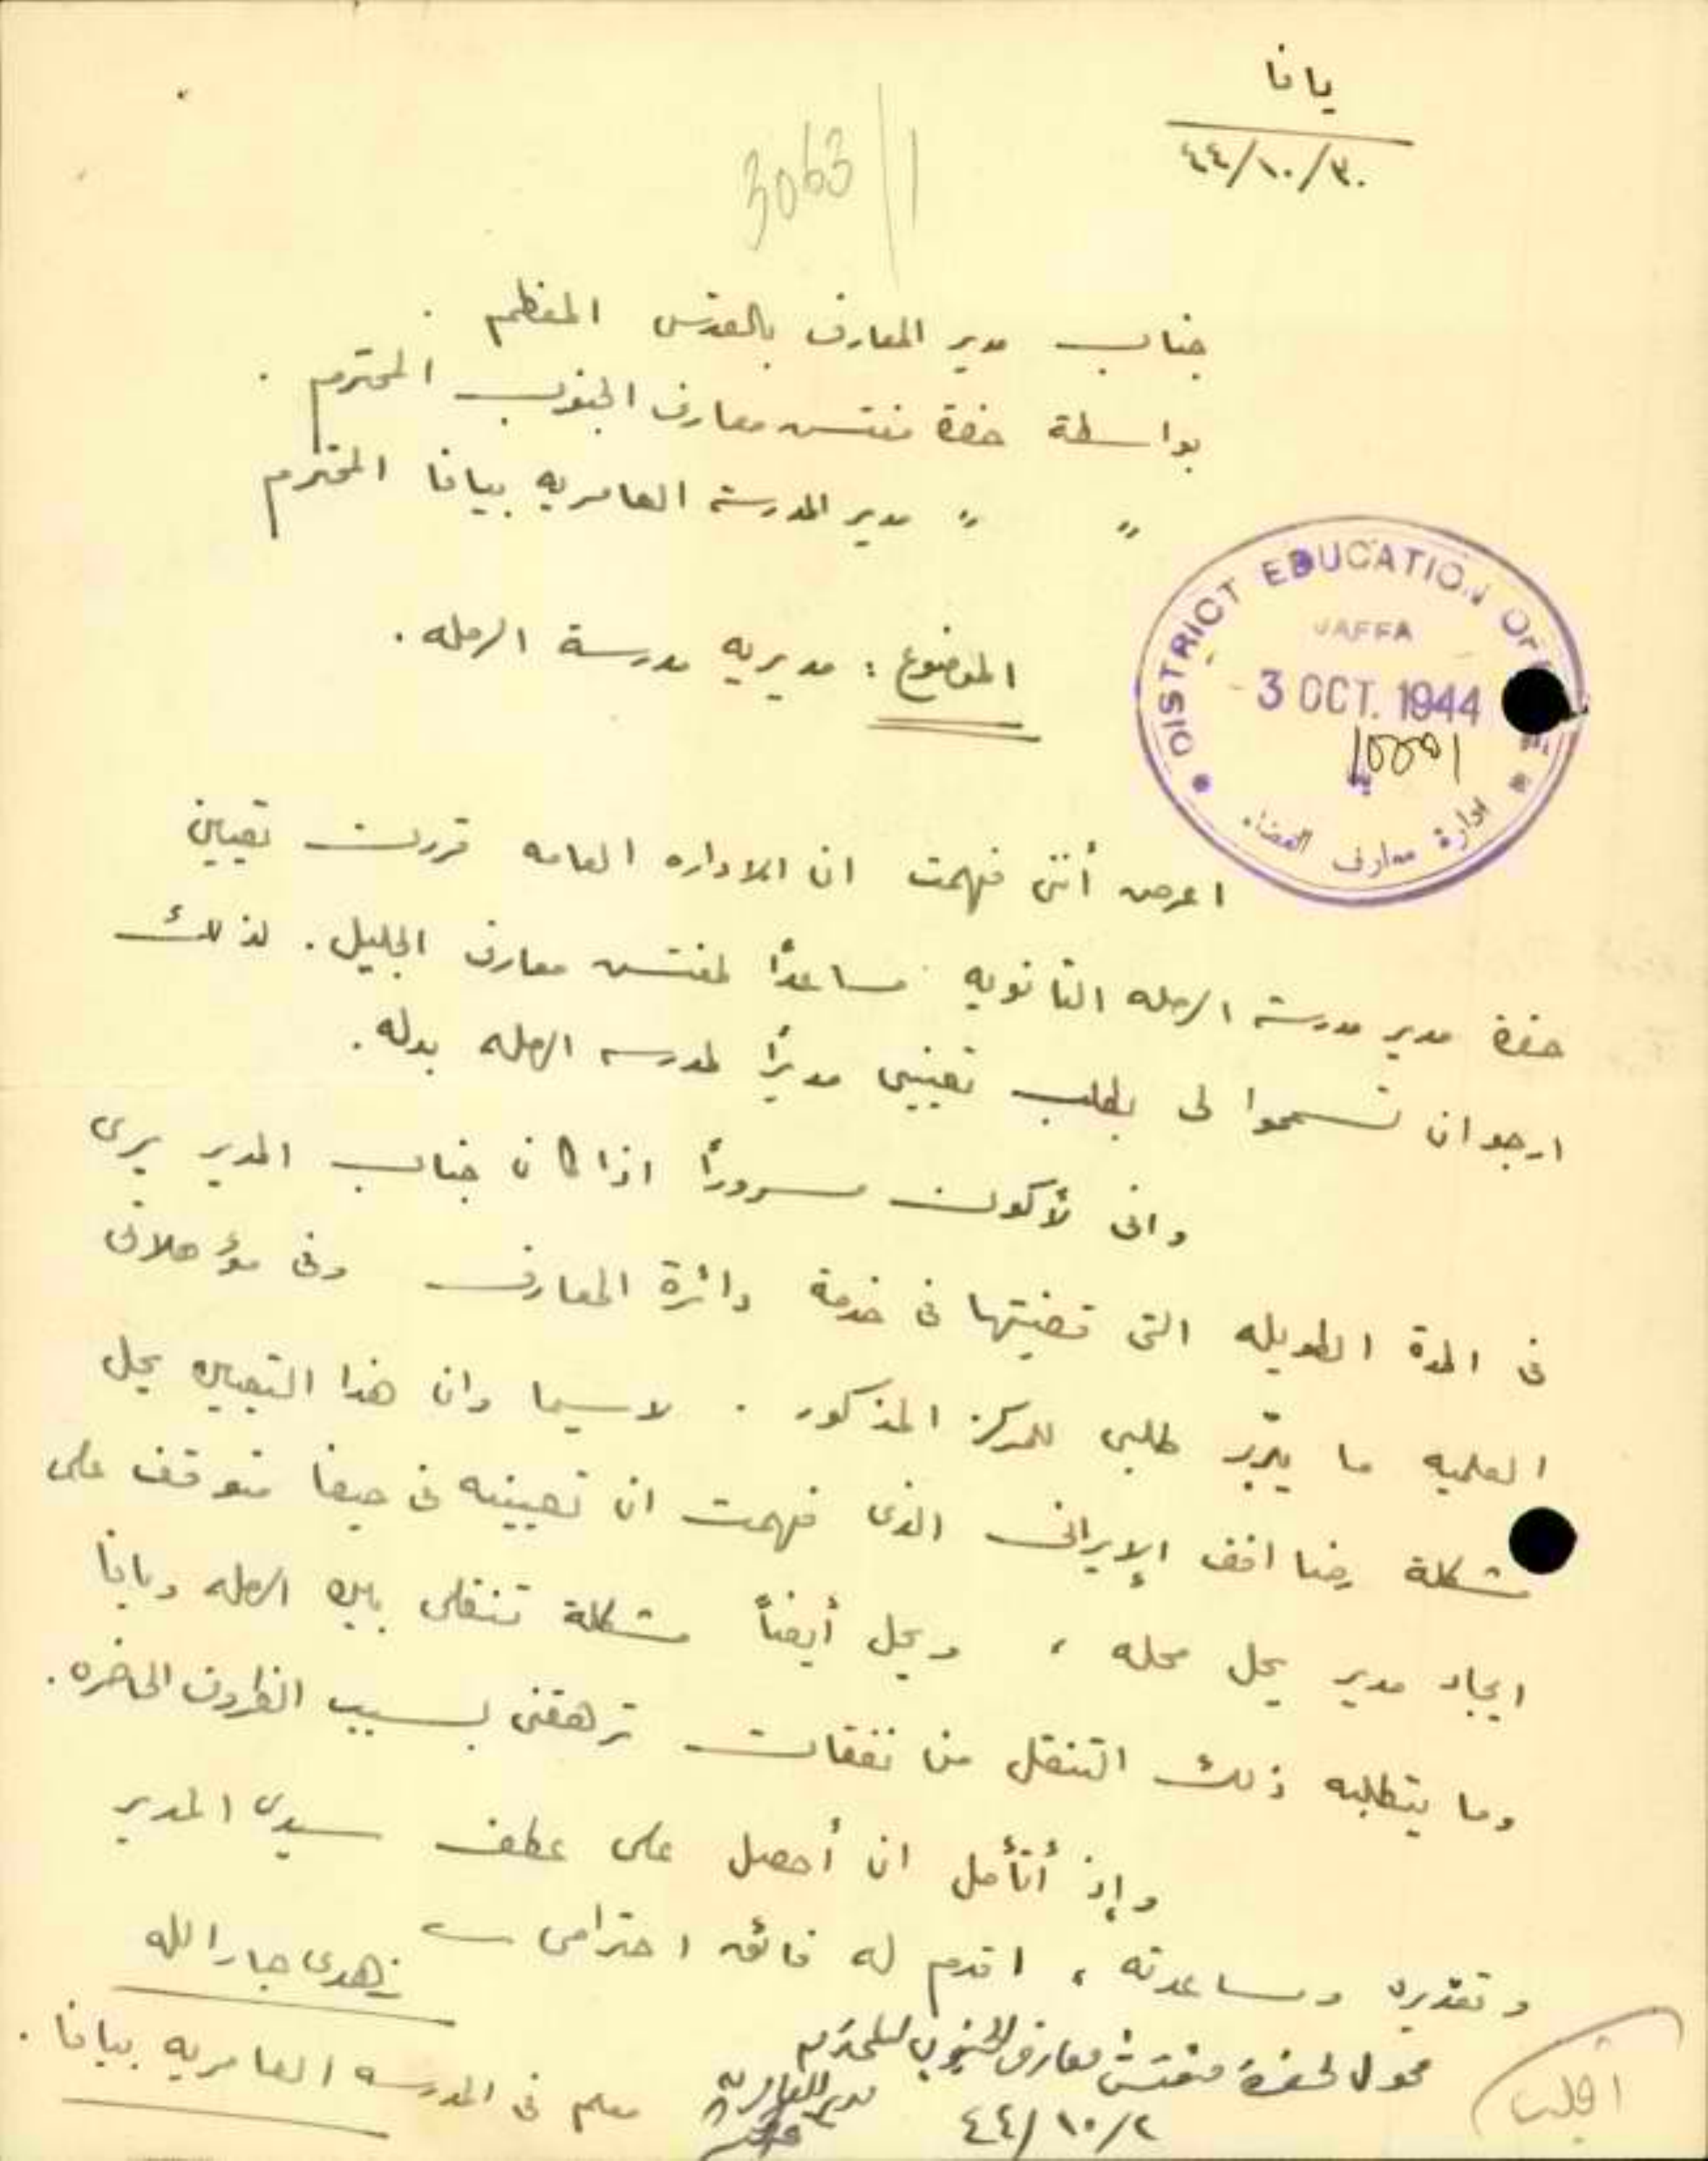 يافا
٤٤/١٠/٢٠
3063/1
جناب مدير المعارف بالقدس المعظم .
بواسطة حضرة مفتش معارف الجنوب المحترم .
" " مدير المدرسة العامريه بيافا المحترم
الموضوع : مديريه مدرسة الرمله .
DISTRICT EDUCATION OFFICE
JAFFA
- 3 OCT. 1944
ادارة معارف القضاء
اعرض أنني فهمت ان الاداره العامه قررت تعيين
حضرة مدير مدرسة الرمله الثانويه مساعداً لمفتش معارف الجليل . لذلك
ارجو ان تسمحوا لى بطلب تعييني مديراً لمدرسه الرمله بدله .
وانى لأكون مسروراً اذا كان جناب المدير يرى
فى المدة الطويله التى قضيتها فى خدمة دائرة المعارف وفى مؤهلاتى
العلميه ما يبرّر طلبى للمركز المذكور . لاسيما وان هذا التعيين يحل
مشكلة رضا افف الإيرانى الذى فهمت ان تعيينه فى حيفا متوقف على
ايجاد مدير يحل محله ، ويحل أيضاً مشكلة تنقلى بين الرمله ويافا
وما يتطلبه ذلك التنقل من نفقات ترهقنى بسبب الظروف الحاضره .
وإذ أتأمل ان أحصل على عطف سيدى المدير
وتقديره ومساعدته ، اقدم له فائق احترامى
زهدى جارالله
معلم فى المدرسه العامريه بيافا .
محول لحضرة مفتش معارف الجنوب المحترم
مدير العامرية
٤٤/١٠/٢
اقلب